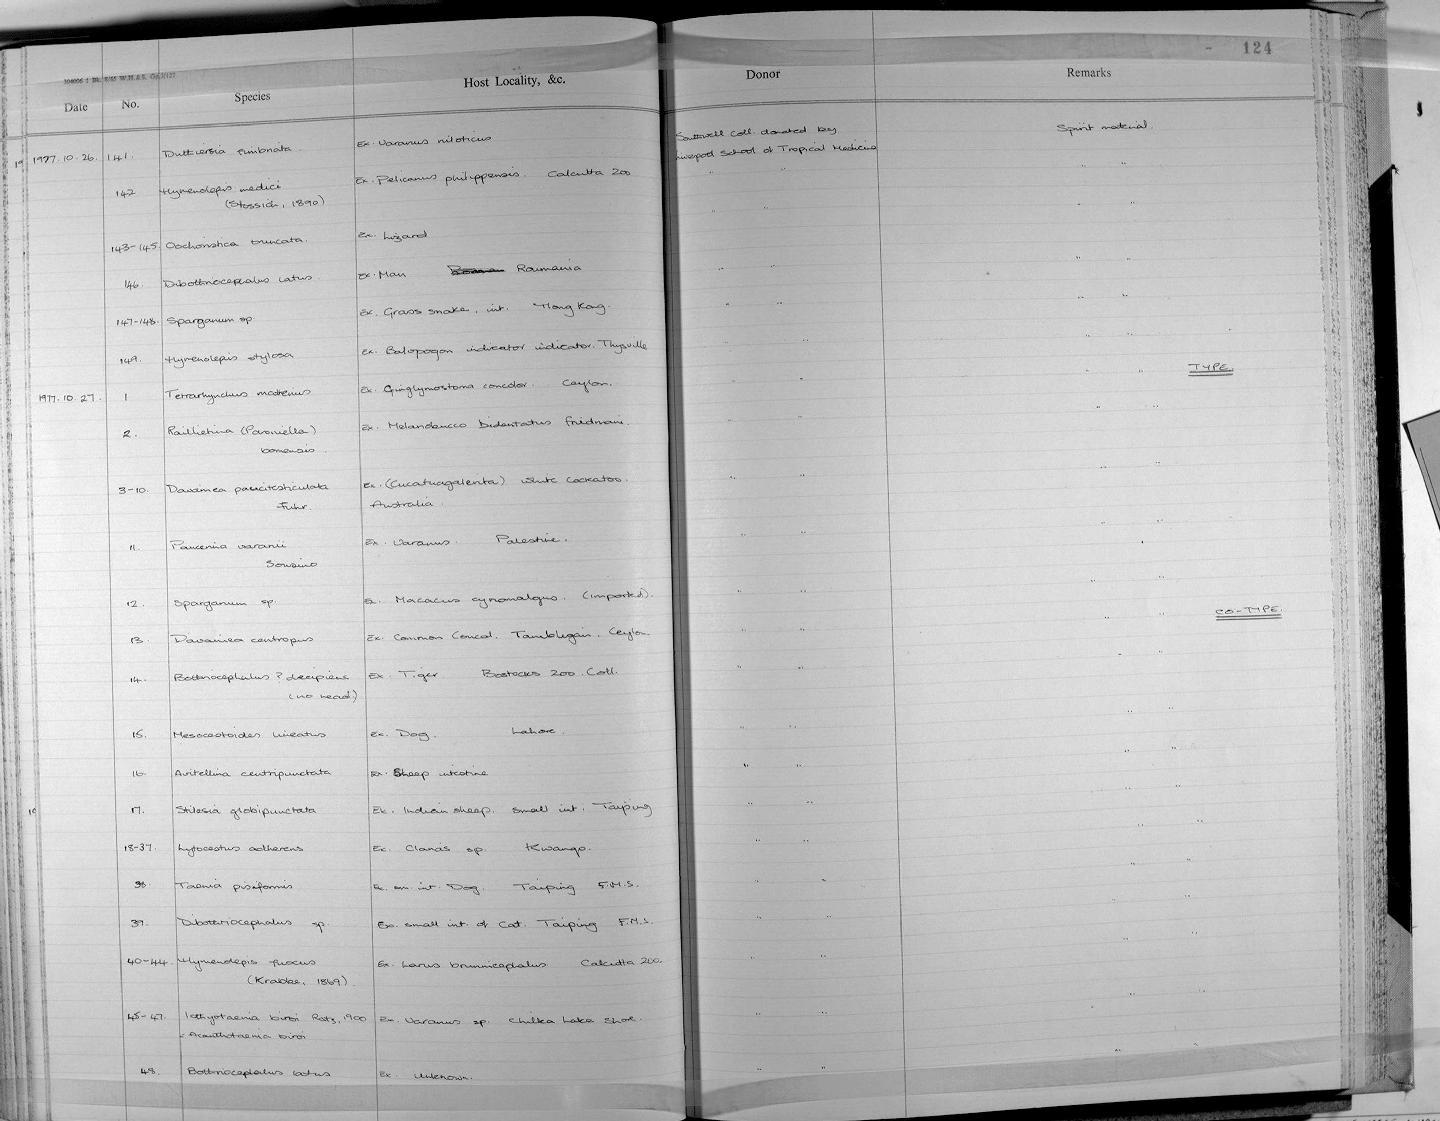 124
Date No. Species Host Locality, &c. Donor Remarks
1977.10.26. 141. Duthiersia fimbriata. Ex. Varanus niloticus Southwell Coll. donated by Spirit material.
Liverpool School of Tropical Medicine
142 Hymenolepis medici Ex. Pelicanus philippensis. Calcutta Zoo " "
(Stossich, 1890)
143-145. Oochoristica truncata. Ex. Lizard " "
146. Dibothriocephalus latus. Ex. Man Roumania " "
147-148. Sparganum sp. Ex. Grass snake, int. Hong Kong. " "
149. Hymenolepis stylosa Ex. Balopogon indicator indicator. Thysville " "
1977.10.27. 1 Tetrarhynchus Ex. Ginglymostoma concolor. Ceylon. " " TYPE.
2. Raillietina (Paroniella) Ex. Bidentatus " "
3-10. Davainea paucitesticulata Ex. (Cucatuagalerita) white cockatoo. " "
Fuhr. Australia.
11. varanii Ex. Varanus. Palestine. " "
Sonsino
12. Sparganum sp. Ex. Macacus cynomolgus. (imported). " "
13. Davainea centropus Ex. Common Ceylon " " CO-TYPE.
14. Bothriocephalus ? decipiens Ex. Tiger Bostocks Zoo. Coll. " "
(no head)
15. Mesocestoides lineatus Ex. Dog. Lahore. " "
16. Avitellina centripunctata Ex. Sheep intestine " "
17. Stilesia globipunctata Ex. Indian sheep. small int. Taiping " "
18-37. Lytocestus adherens Ex. Clarias sp. Kwango. " "
38. Taenia pisiformis Ex. sm. int. Dog. Taiping F.M.S. " "
39. Dibothriocephalus sp. Ex. small int. of Cat. Taiping F.M.S. " "
40-44. Hymenolepis fuscus Ex. Larus brunnicephalus Calcutta Zoo. " "
(Krabbe, 1869)
45-47. Ichthyotaenia biroi Ratz, 1900 Ex. Varanus sp. Chilka Lake Shore. " "
Acanthotaenia biroi
48. Bothriocephalus latus Ex. Unknown. " "